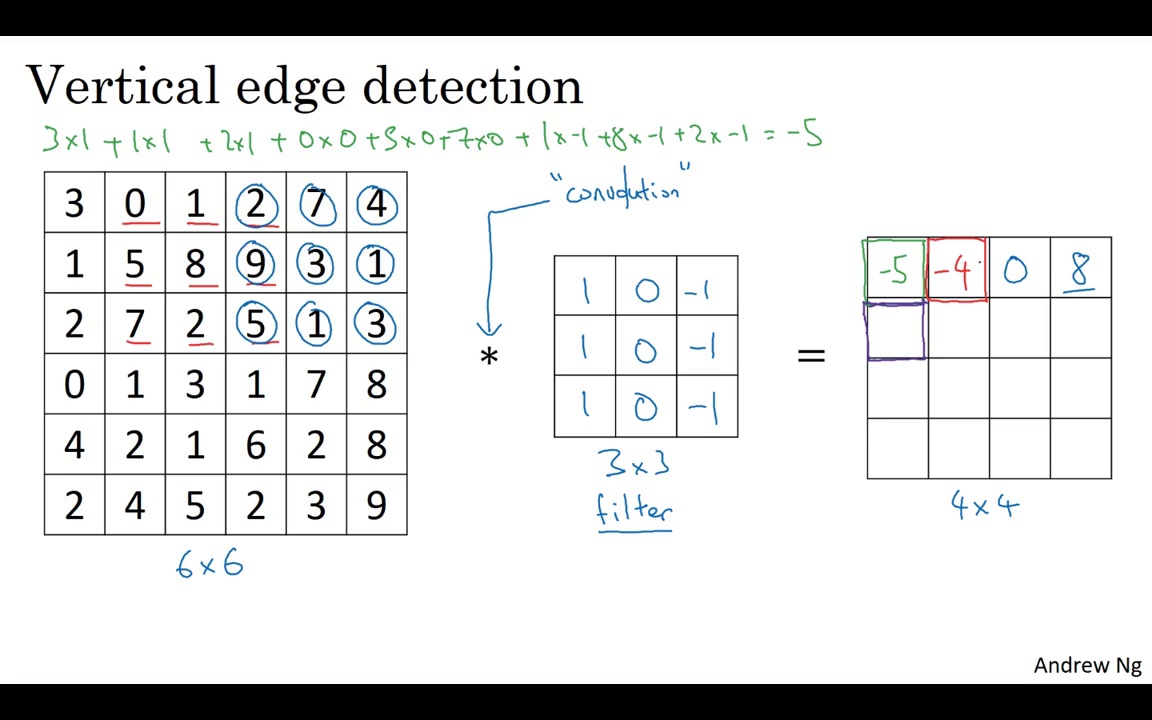 Vertical edge detection
3×1 + 1×1 + 2×1 + 0×0 + 5×0 + 7×0 + 1×-1 + 8×-1 + 2×-1 = -5
"convolution"
3 0 1 2 7 4
1 5 8 9 3 1
2 7 2 5 1 3
0 1 3 1 7 8
4 2 1 6 2 8
2 4 5 2 3 9
6×6
*
1 0 -1
1 0 -1
1 0 -1
3×3
filter
=
-5 -4 0 8
4×4
Andrew Ng